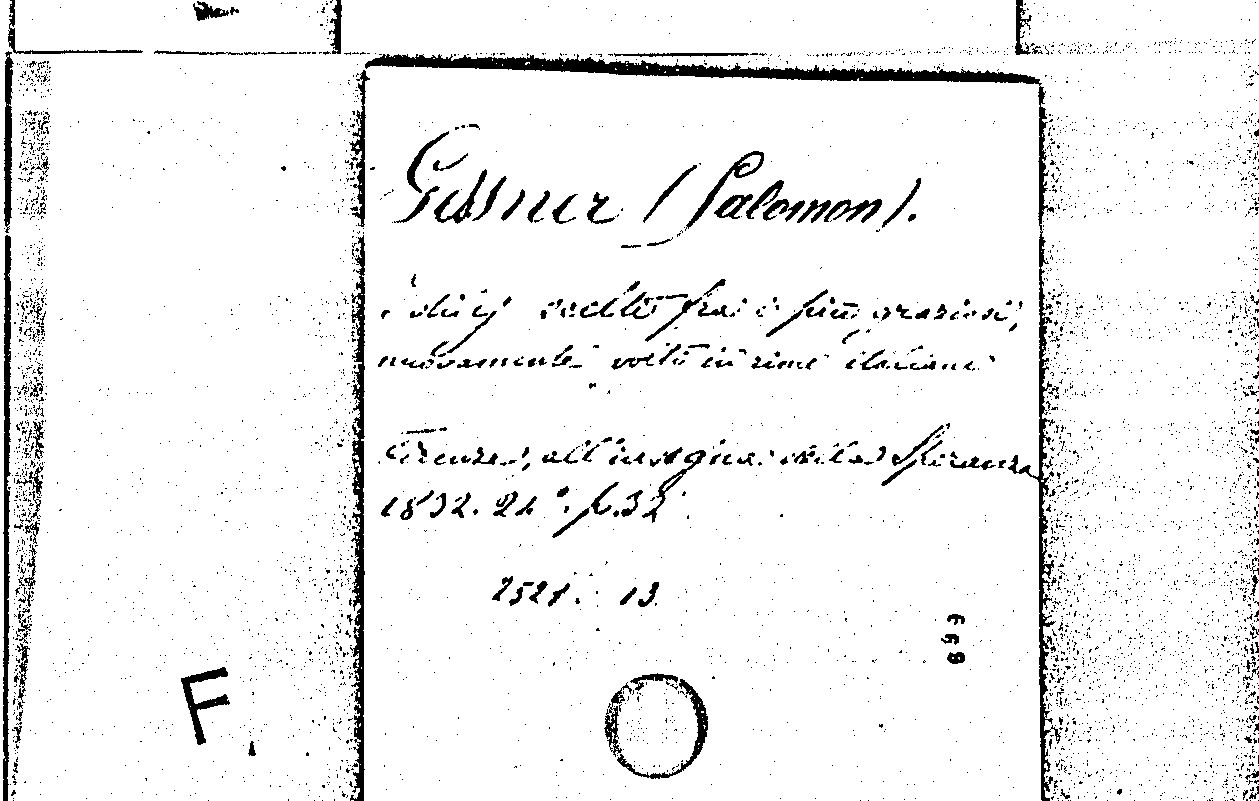 Gessner (Salomon).
Idilij scelti frai i più graziosi,
nuovamente volti in rime italiane
Firenze, all'insegna della Speranza
1832. 24°. p. 32
2521. 13
699
F